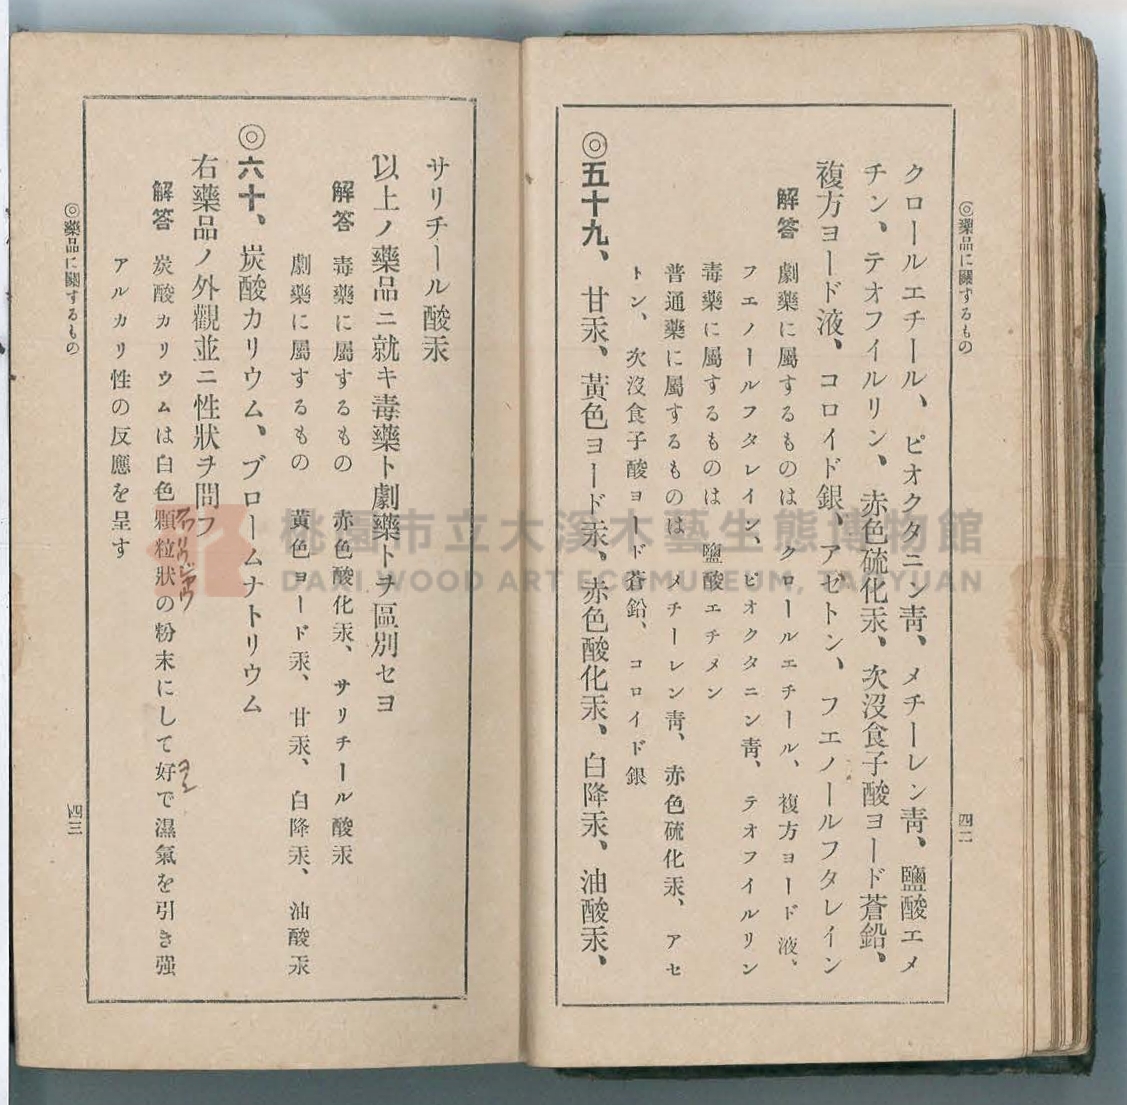 ◎藥品に關するもの
四二
クロールエチール、ピオクタニン靑、メチーレン靑、鹽酸エメ
チン、テオフイルリン、赤色硫化汞、次沒食子酸ヨード蒼鉛、
複方ヨード液、コロイド銀、アセトン、フエノールフタレイン
解答 劇藥に屬するものは クロールエチール、複方ヨード液、
フエノールフタレイン、ピオクタニン靑、テオフイルリン
毒藥に屬するものは 鹽酸エチメン
普通藥に屬するものは メチーレン靑、赤色硫化汞、アセ
トン、次沒食子酸ヨード蒼鉛、コロイド銀
◎五十九、甘汞、黃色ヨード汞、赤色酸化汞、白降汞、油酸汞、
サリチール酸汞
以上ノ藥品ニ就キ毒藥ト劇藥トヲ區別セヨ
解答 毒藥に屬するもの 赤色酸化汞、サリチール酸汞
劇藥に屬するもの 黃色ヨード汞、甘汞、白降汞、油酸汞
◎六十、炭酸カリウム、ブロームナトリウム
右藥品ノ外觀並ニ性狀ヲ問フ
解答 炭酸カリウムは白色顆粒狀の粉末にして好で濕氣を引き强
アルカリ性の反應を呈す
◎藥品に關するもの
四三
桃園市立大溪木藝生態博物館
DAXI WOOD ART ECOMUSEUM, TAOYUAN